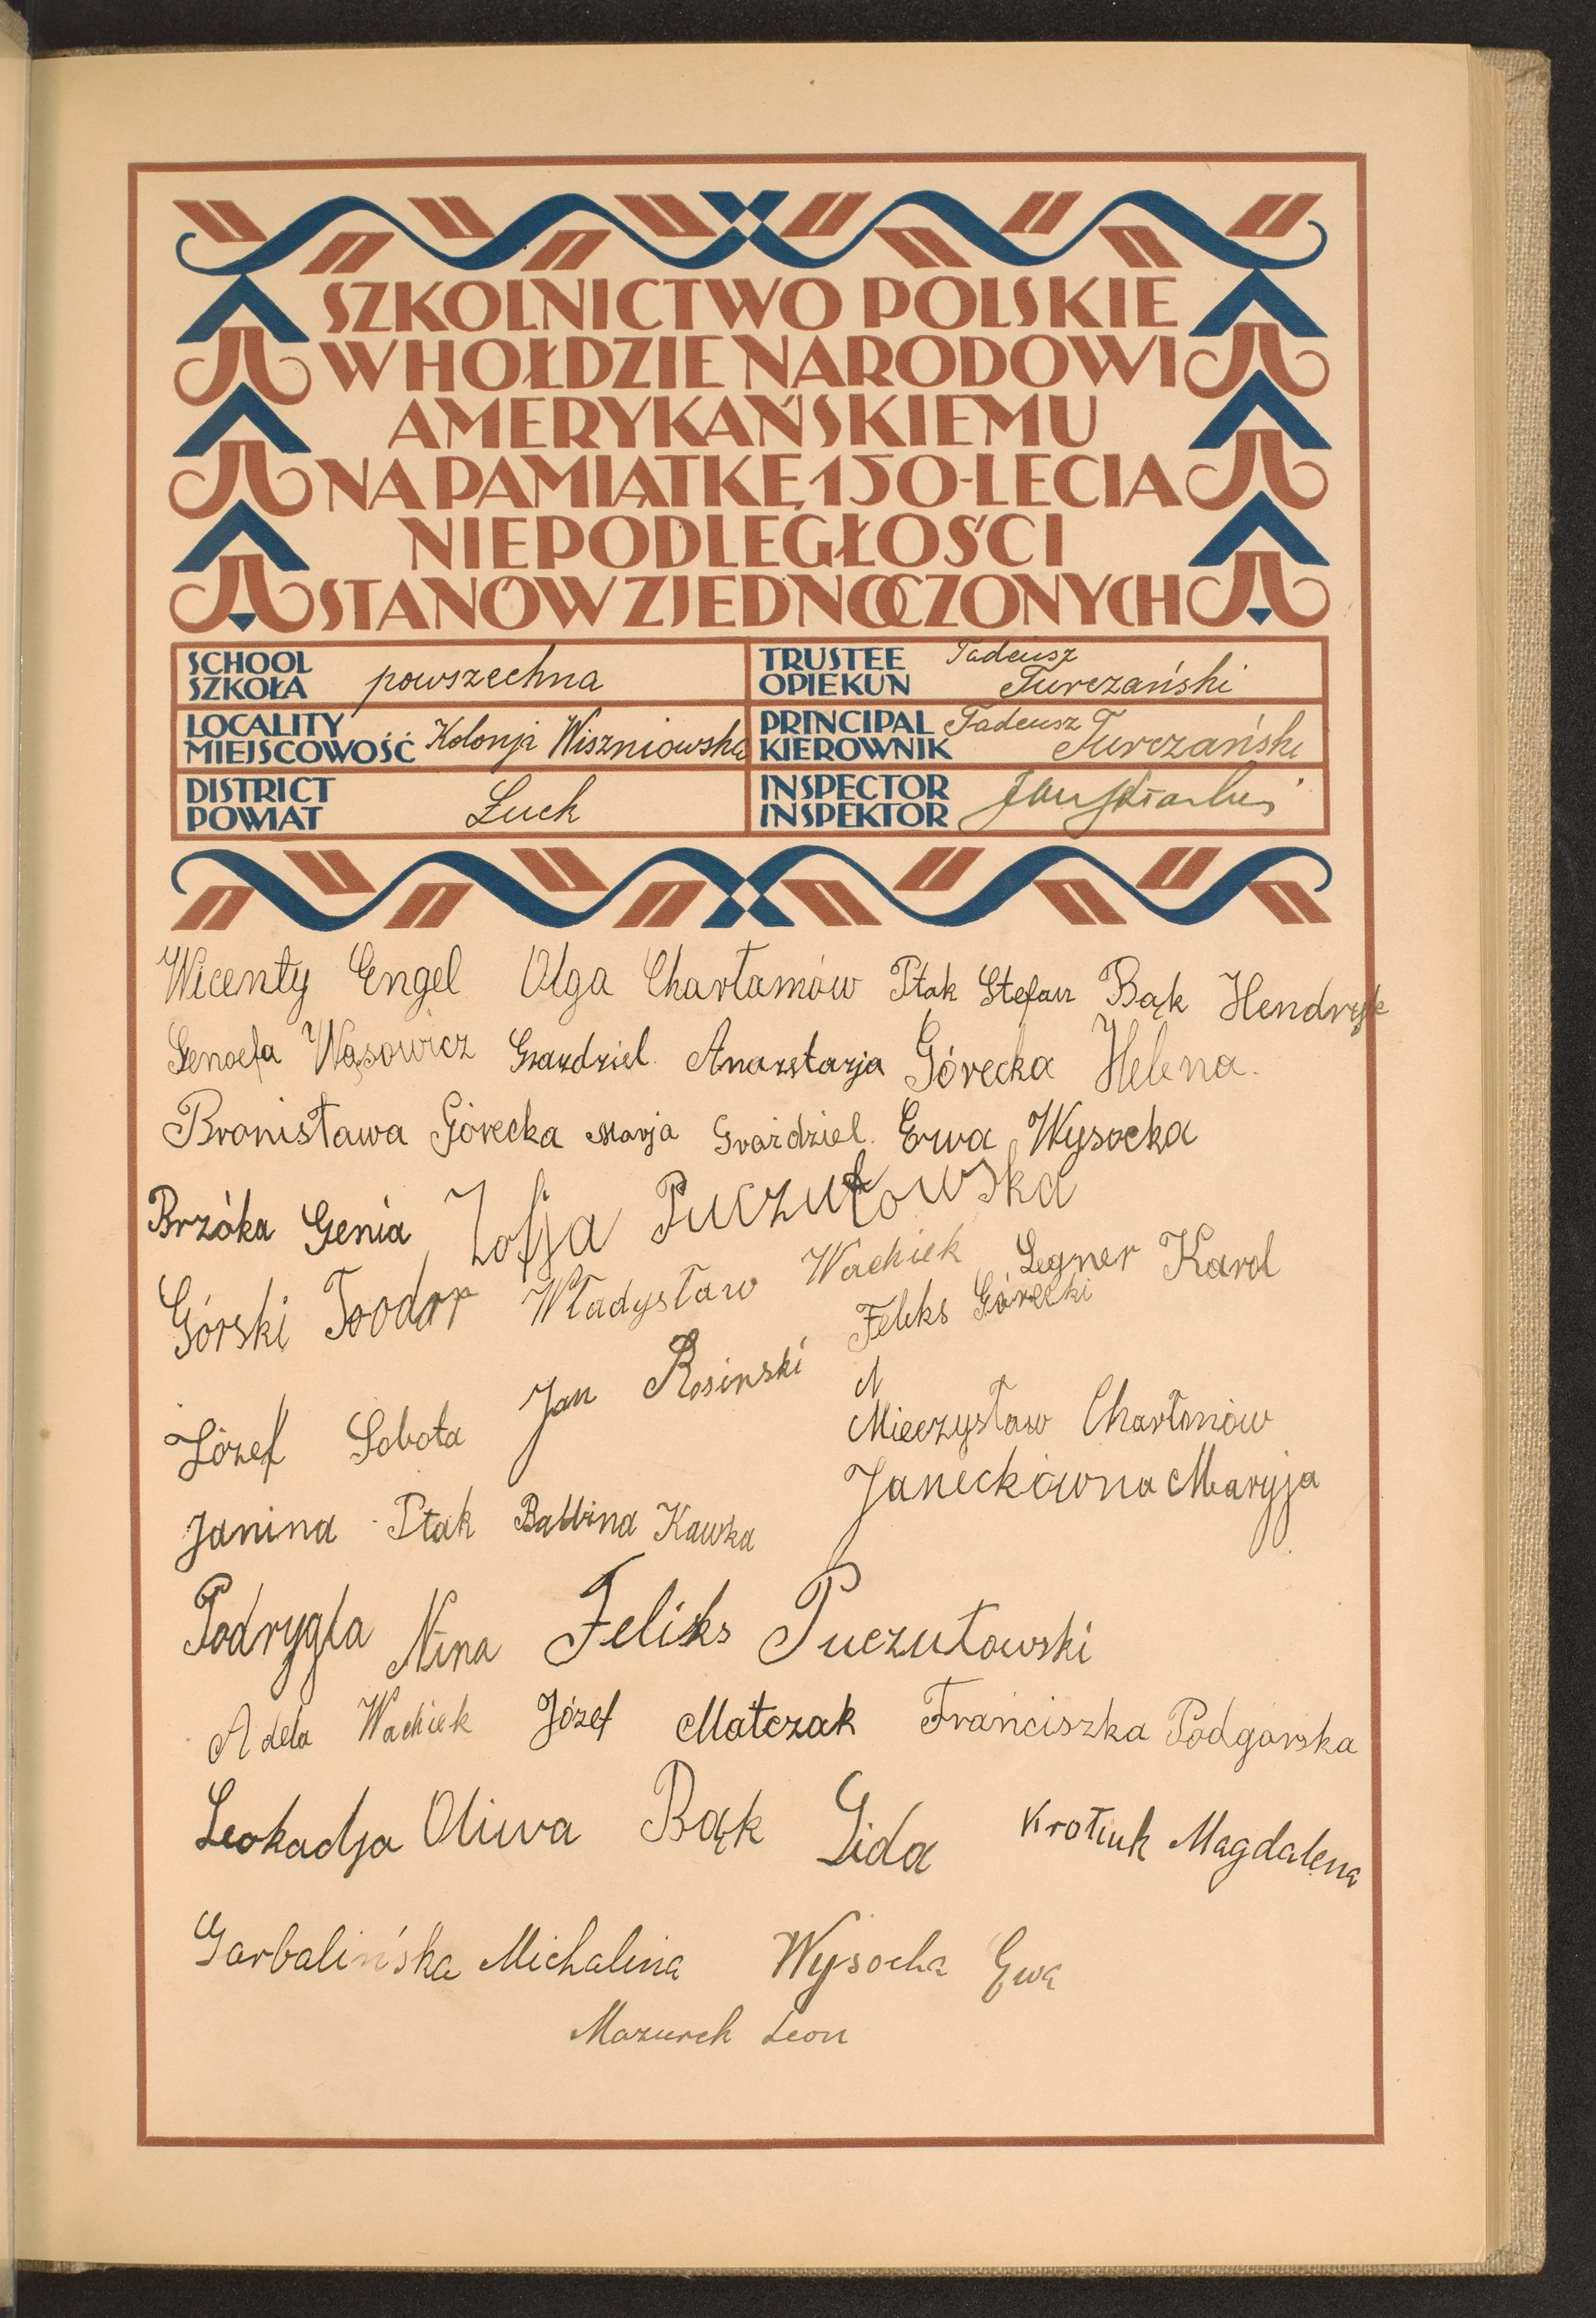 SZKOLNICTWO POLSKIE
W HOŁDZIE NARODOWI
AMERYKAŃSKIEMU
NA PAMIĄTKĘ 150-LECIA
NIEPODLEGŁOŚCI
STANÓW ZJEDNOCZONYCH
SCHOOL
SZKOŁA powszechna
TRUSTEE OPIEKUN Tadeusz
Turczański
LOCALITY
MIEJSCOWOŚĆ Kolonja Wiszniowska
PRINCIPAL KIEROWNIK Tadeusz
Turczański
DISTRICT
POWIAT Łuck
INSPECTOR
INSPEKTOR Jan
Wicenty Engel Olga Charłamów Ptak Stefan Bąk Hendryk
Genoefa Wąsowicz Anazstazja Górecka Helena.
Bronisława Górecka Marja Gvażdziel. Ewa Wysocka
Brzóka Genia Zofja Puczułowska
Górski Toodor Władysław Wachiek Legner Karol
Feliks Górecki
Józef Sobota Jan Rosinski
M
Mieczysław Charłmów
Janeckówna Maryja
Janina Ptak Balbina Kawka
Podrygła Nina Feliks Puczułowski
Adela Wachiek Józef Matczak Franciszka Podgórska
Leokadja Oliwa Bąk Lida Krotiuk Magdalena
Garbalińska Michalina Wysocka Ewa
Mazurek Leon